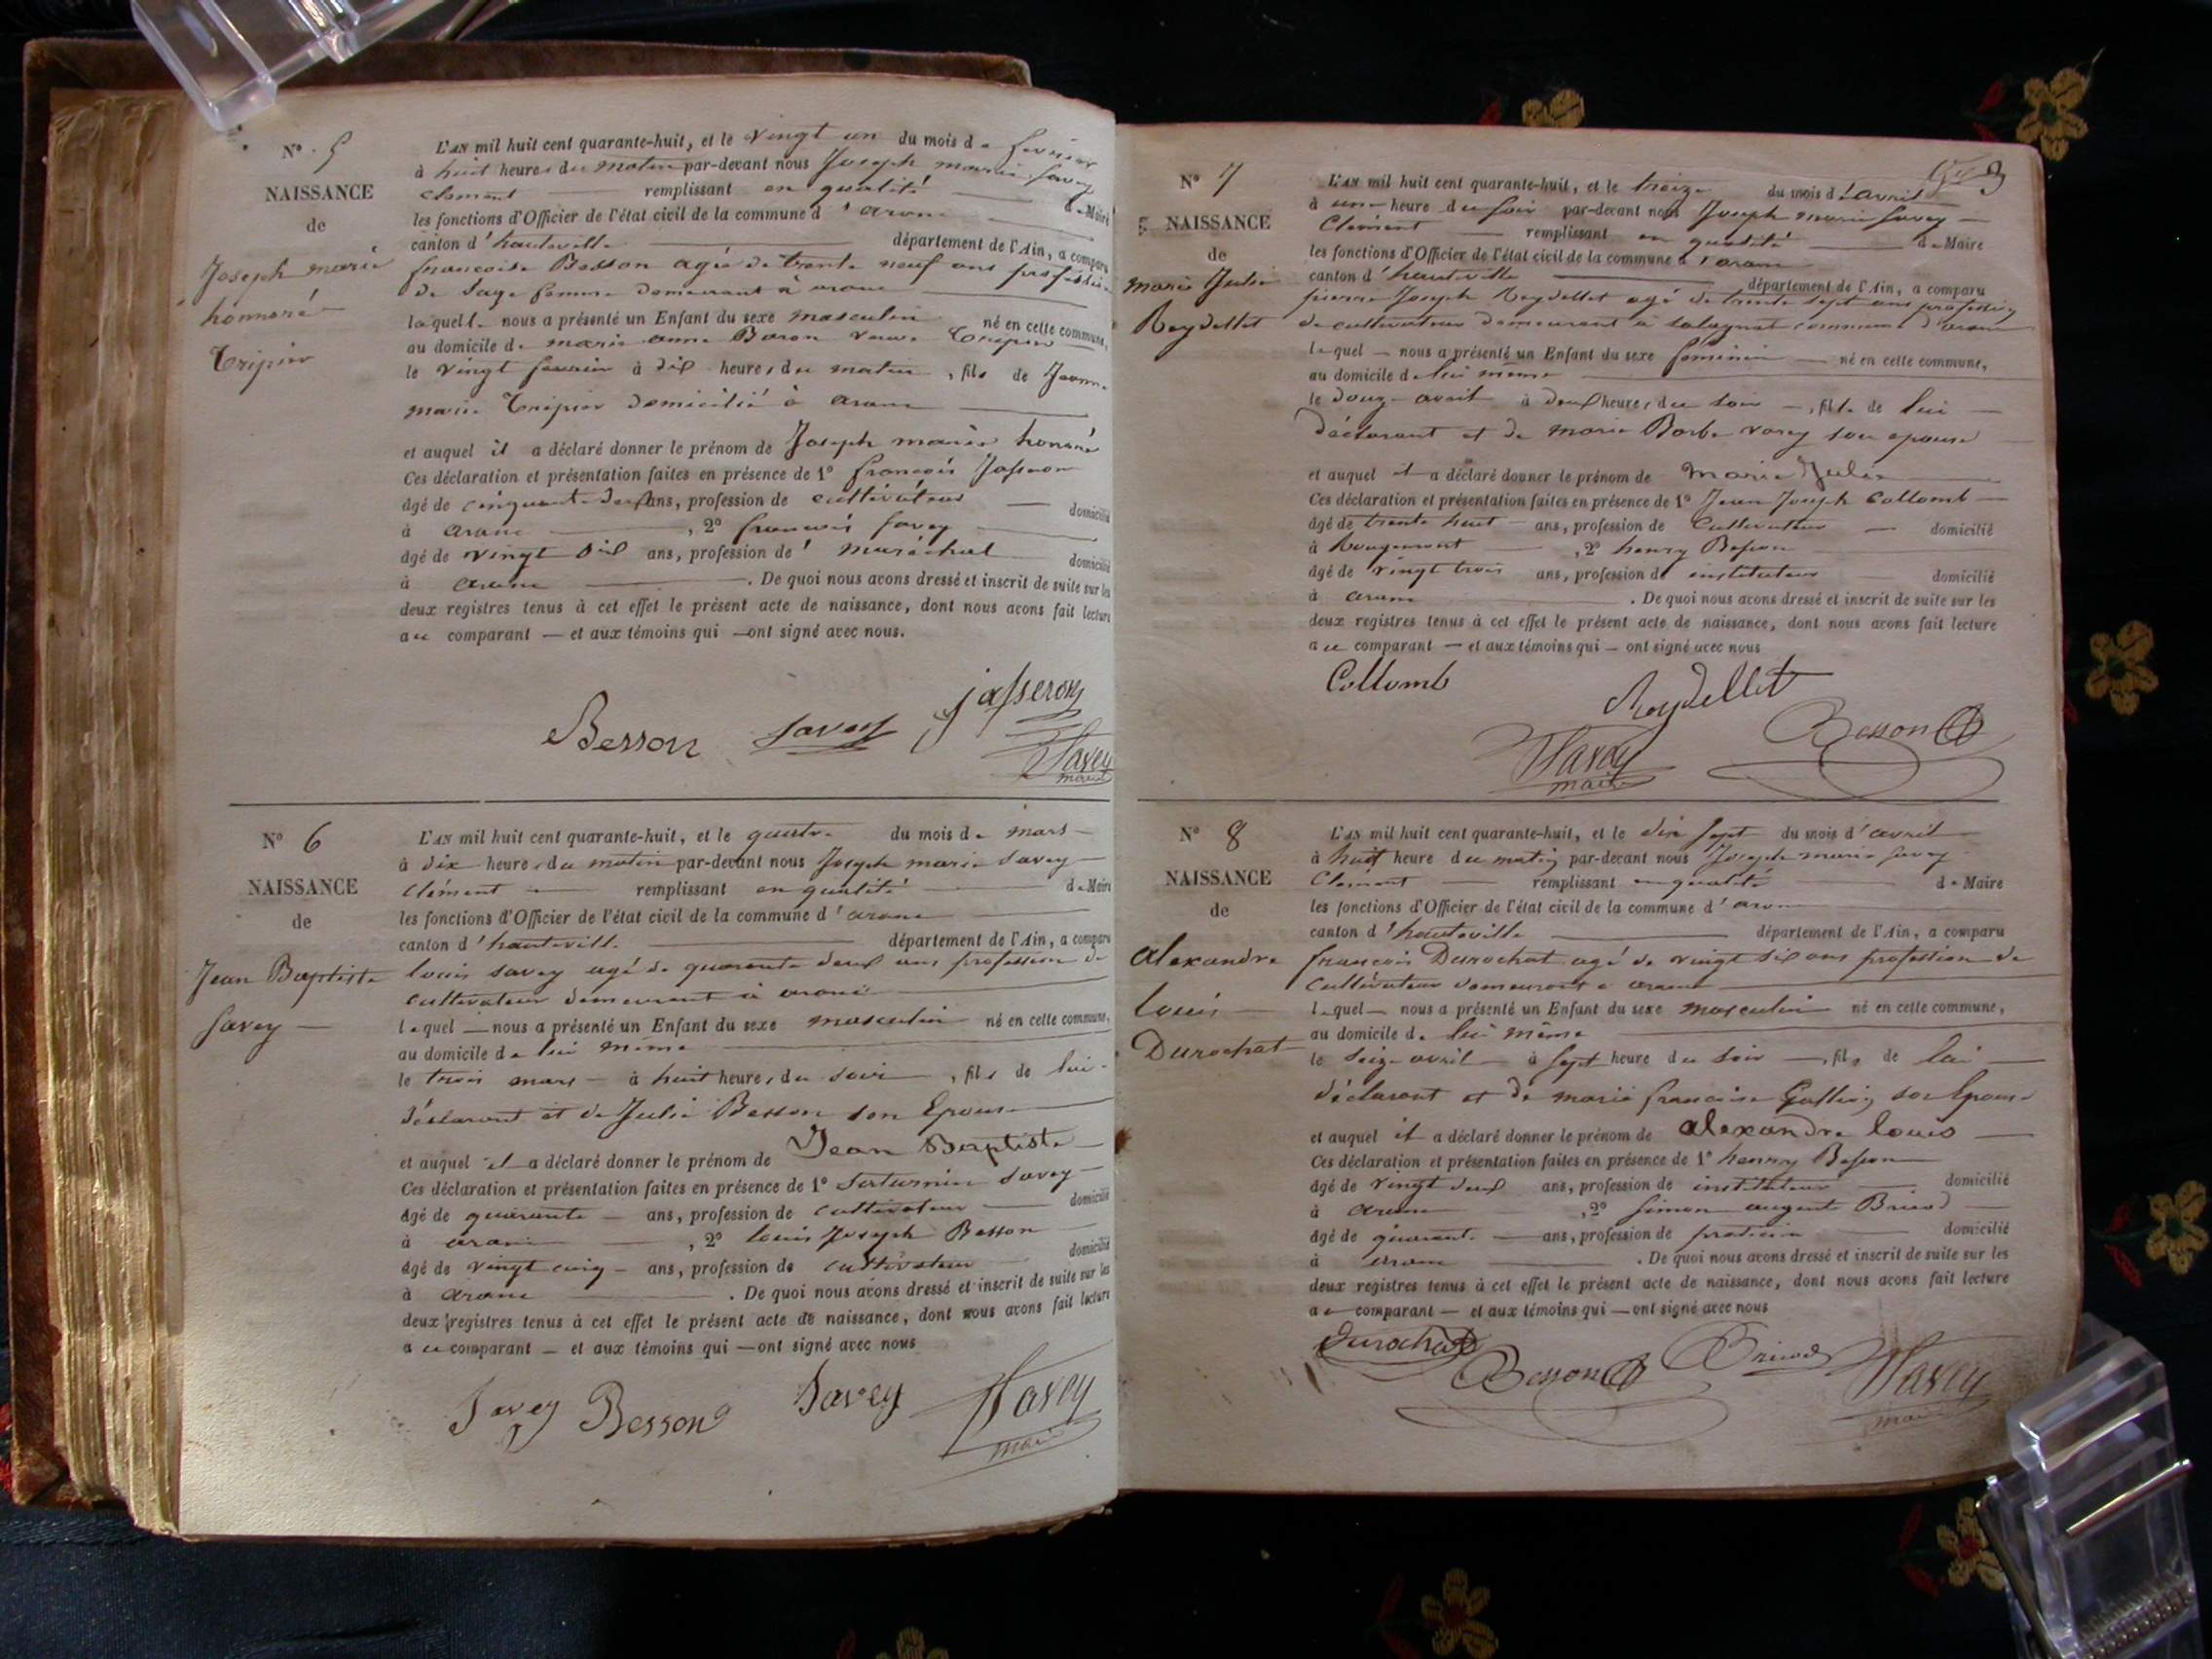 N° 5
NAISSANCE
de
Joseph marie
honnoré
Tripier
L'AN mil huit cent quarante-huit, et le vingt un du mois de fevrier
à huit heures du matin par-devant nous Joseph marie Savey
Clement remplissant en qualité de Maire
les fonctions d'Officier de l'état civil de la commune d'aranc
canton d'hauteville département de l'Ain, a comparu
francoise Besson agée de trente neuf ans profession
de Sage femme demeurant à aranc
laquelle nous a présenté un Enfant du sexe masculin né en cette commune,
au domicile de marie anne Baron veuve Tripier
le vingt fevrier à dix heures du matin, fils de Jeanne
marie Tripier domicilié à aranc
et auquel il a déclaré donner le prénom de Joseph marie honnoré
Ces déclaration et présentation faites en présence de 1° francois Jasseron
âgé de cinquante deux ans, profession de cultivateur domicilié
à aranc, 2° francois Savey
âgé de vingt dix ans, profession de maréchal domicilié
à aranc. De quoi nous avons dressé et inscrit de suite sur les
deux registres tenus à cet effet le présent acte de naissance, dont nous avons fait lecture
au comparant — et aux témoins qui — ont signé avec nous.
jasseron
Besson Savey
Savey
maire
N° 6
NAISSANCE
de
Jean Baptiste
Savey
L'AN mil huit cent quarante-huit, et le quatre du mois de mars
à dix heures du matin par-devant nous Joseph marie Savey
Clément remplissant en qualité de Maire
les fonctions d'Officier de l'état civil de la commune d'aranc
canton d'hauteville département de l'Ain, a comparu
louis Savey agé de quarante deux ans profession de
cultivateur demeurant à aranc
lequel — nous a présenté un Enfant du sexe masculin né en cette commune,
au domicile de lui même
le trois mars à huit heures du soir, fils de lui
déclarant et de Julie Besson son Epouse
et auquel il a déclaré donner le prénom de Jean Baptiste
Ces déclaration et présentation faites en présence de 1° Saturnin Savey
âgé de quarante ans, profession de cultivateur domicilié
à aranc, 2° louis Joseph Besson
âgé de vingt cinq ans, profession de cultivateur domicilié
à aranc. De quoi nous avons dressé et inscrit de suite sur les
deux registres tenus à cet effet le présent acte de naissance, dont nous avons fait lecture
au comparant — et aux témoins qui — ont signé avec nous
Savey Besson Savey Savey
maire
N° 7
NAISSANCE
de
marie Julie
Reydellet
L'AN mil huit cent quarante-huit, et le treize du mois d'avril
à une heure du soir par-devant nous Joseph marie Savey
Clément remplissant en qualité de Maire
les fonctions d'Officier de l'état civil de la commune d'aranc
canton d'hauteville département de l'Ain, a comparu
pierre Joseph Reydellet agé de trente sept ans profession
de cultivateur demeurant à commune d'aranc
lequel — nous a présenté un Enfant du sexe feminin né en cette commune,
au domicile de lui même
le douze avril à deux heures du soir —, fille de lui
déclarant et de marie Barbe varey son epouse
et auquel il a déclaré donner le prénom de Marie Julie
Ces déclaration et présentation faites en présence de 1° Jean Joseph Collomb
âgé de trente huit ans, profession de Cultivateur domicilié
à Rougemont, 2° henry Besson
âgé de vingt trois ans, profession d'instituteur domicilié
à aranc. De quoi nous avons dressé et inscrit de suite sur les
deux registres tenus à cet effet le présent acte de naissance, dont nous avons fait lecture
au comparant — et aux témoins qui — ont signé avec nous
Collomb Reydellet
Savey Besson
maire
N° 8
NAISSANCE
de
alexandre
louis
Durochat
L'AN mil huit cent quarante-huit, et le dix sept du mois d'avril
à huit heure du matin par-devant nous Joseph marie Savey
Clément remplissant en qualité de Maire
les fonctions d'Officier de l'état civil de la commune d'aranc
canton d'hauteville département de l'Ain, a comparu
francois Durochat agé de vingt six ans profession de
cultivateur demeurant à aranc
lequel — nous a présenté un Enfant du sexe masculin né en cette commune,
au domicile de lui même
le seize avril à sept heure du soir —, fils de lui
déclarant et de marie francoise son Epouse
et auquel il a déclaré donner le prénom de alexandre louis
Ces déclaration et présentation faites en présence de 1° henry Besson
âgé de vingt deux ans, profession de instituteur domicilié
à aranc, 2° Simon Bricod
âgé de quarante ans, profession de praticien domicilié
à aranc. De quoi nous avons dressé et inscrit de suite sur les
deux registres tenus à cet effet le présent acte de naissance, dont nous avons fait lecture
au comparant — et aux témoins qui — ont signé avec nous
Durochat Besson Bricod Savey
maire